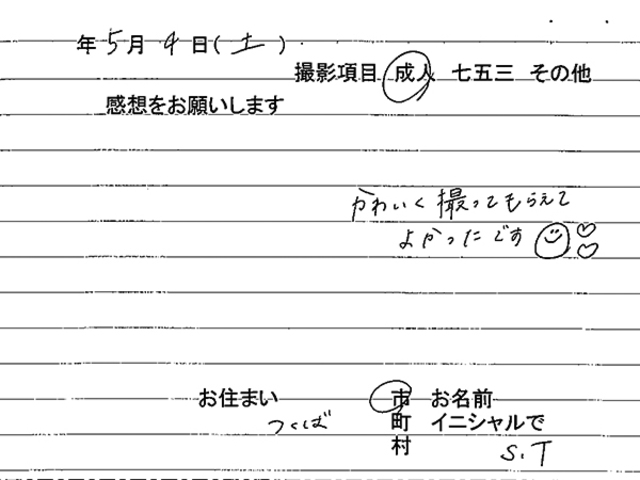 年 5月 4日(土)
撮影項目 成人 七五三 その他
感想をお願いします
かわいく撮ってもらえて
よかったです
お住まい つくば 市 町 村
お名前 イニシャルで S.T